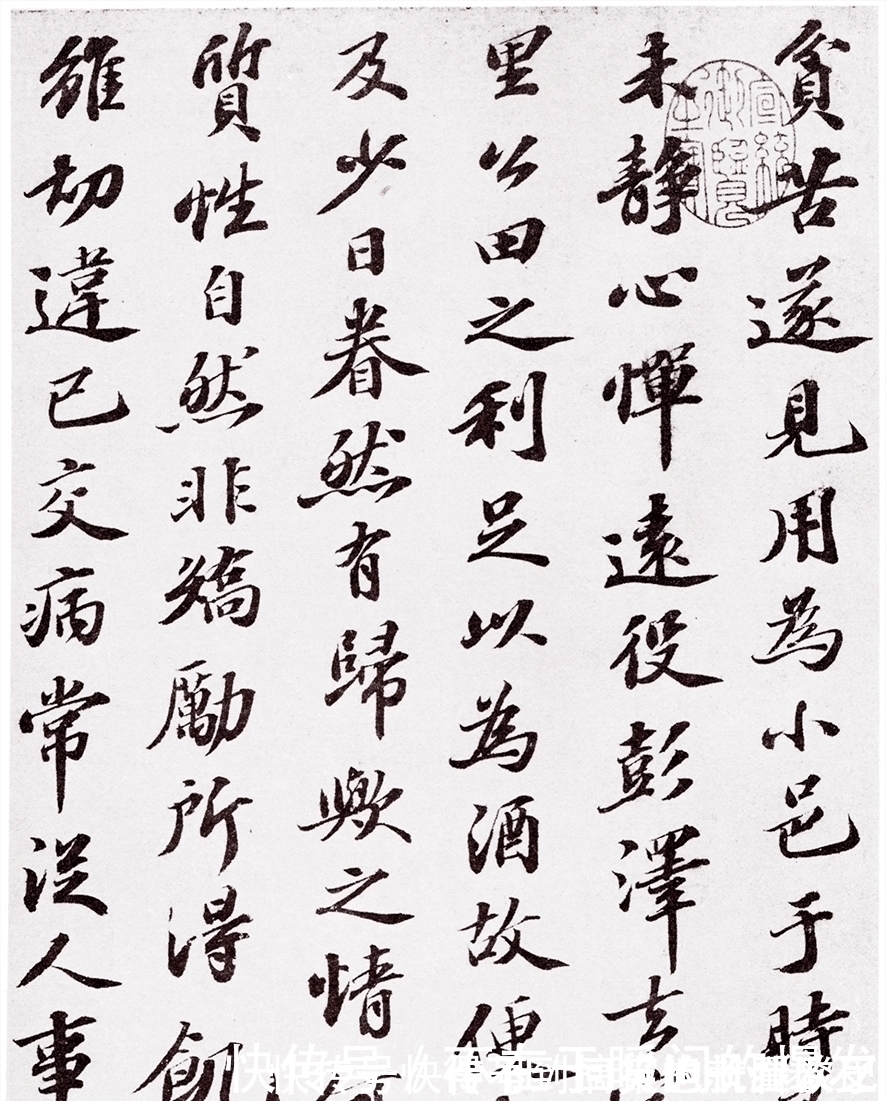 貧苦遂見用為小邑于時
未静心憚遠役彭澤去
里公田之利足以為酒故便
及少日眷然有歸歟之情
質性自然非矯勵所得飢
雖切違已交病常從人事
快传号